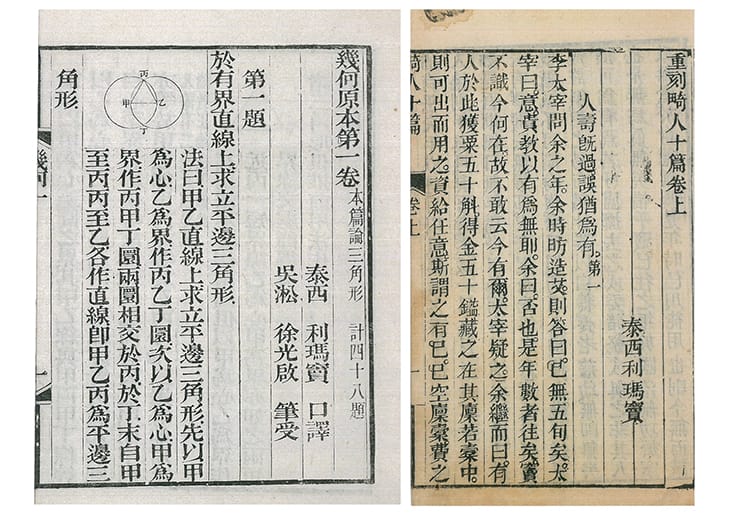 幾何原本第一卷 本篇論三角形 計四十八題
泰西 利瑪竇 口譯
吳淞 徐光啟 筆受
第一題
於有界直線上求立平邊三角形
法曰甲乙直線上求立平邊三角形先以甲
爲心乙爲界作丙乙丁圜次以乙爲心甲爲
界作丙甲丁圜兩圜相交於丙於丁末自甲
至丙丙至乙各作直線卽甲乙丙爲平邊三
角形
丙
甲 乙
丁
幾何一 一
重刻畸人十篇卷上
泰西利瑪竇
人壽旣過誤猶爲有。第一
李太宰問余之年。余時昉造艾。則答曰。已無五旬矣。太
宰曰。意貴敎以有爲無耶。余曰。否也。是年數者往矣。竇
不識今何在。故不敢云今有爾。太宰疑之。余繼而曰。有
人於此獲粟五十斛得金五十鎰藏之在其廩若槖中。
則可出而用之。資給任意斯謂之有。已已空廩槖費之
畸人十篇 卷上